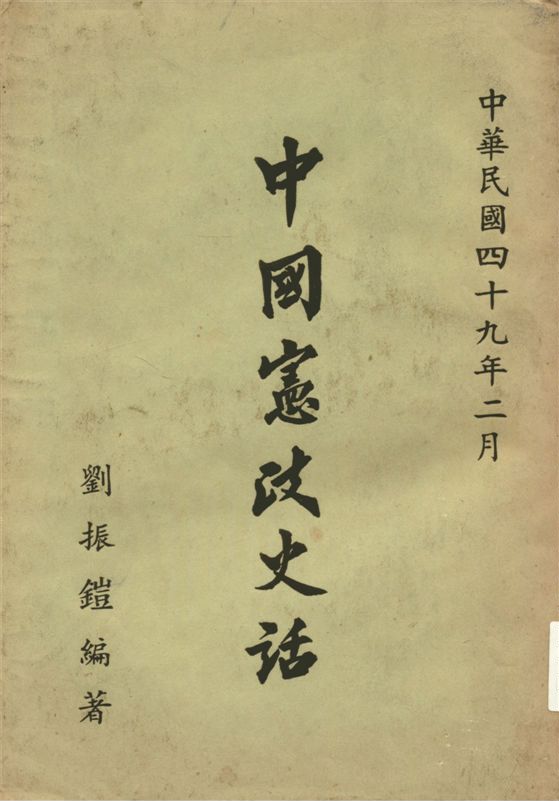 中華民國四十九年二月
中國憲政史話
劉振鎧編著